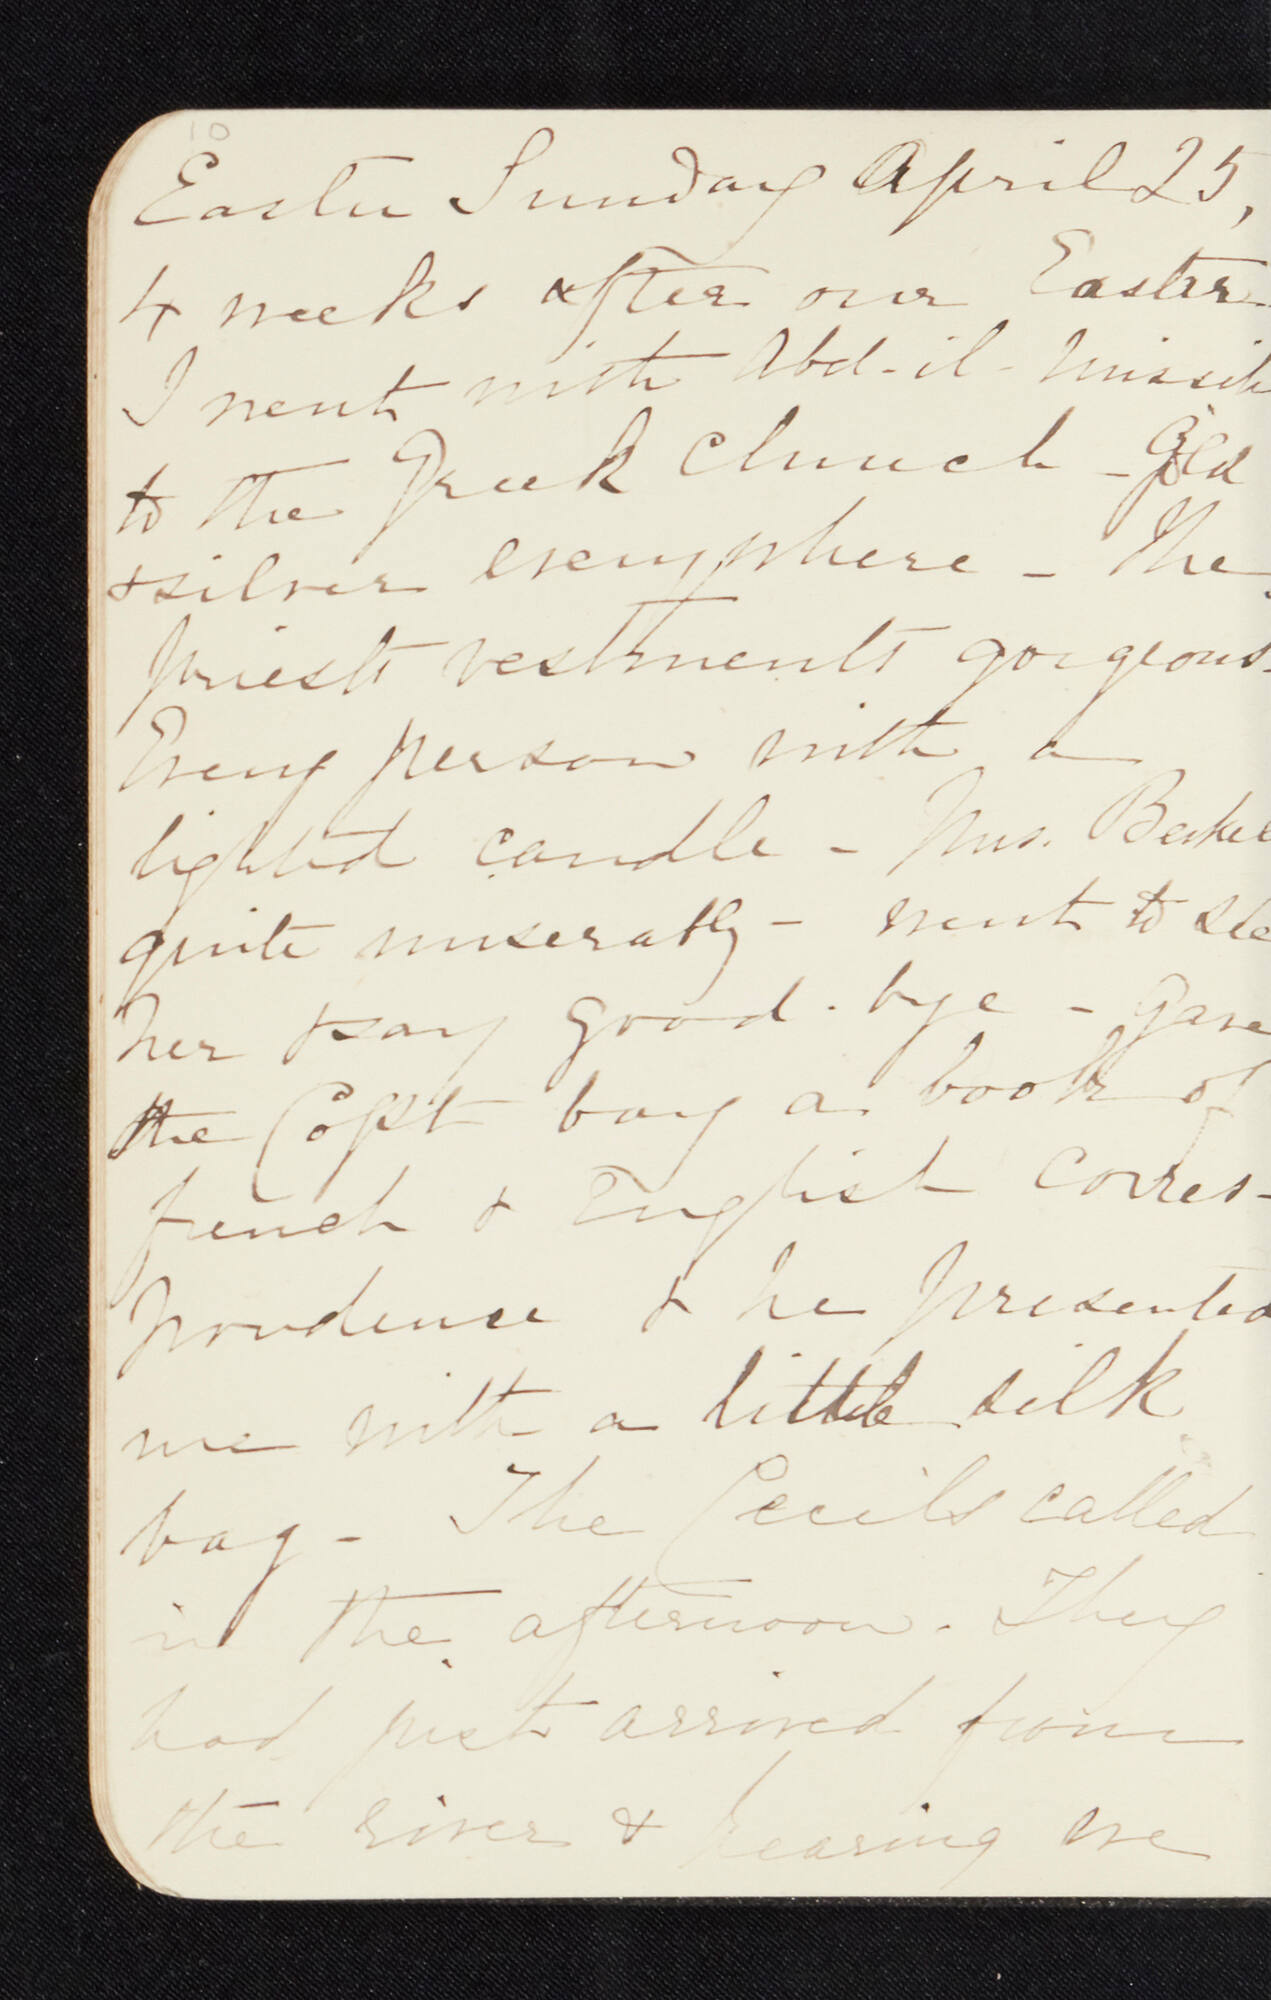 10
Easter Sunday April 25,
4 weeks after our Easter
I went with Abd-il-Missih
to the Greek Church - Gold
& silver everywhere - The
priests vestments gorgeous.
Every person with a
lighted candle - Mrs.
quite miserably - went to see
her & say good-bye - gave
the Copt boy a book of
french & English corres-
pondence & he presented
me with a little silk
bag - The Cecils called
in the afternoon. They
had just arrived from
the river & hearing we